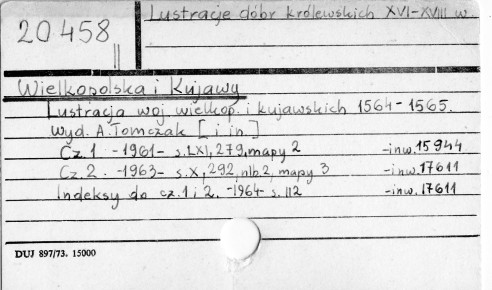 Lustracje dóbr królewskich XVI-XVIII w.
20458
Wielkopolska i Kujawy
Lustracja woj. wielkop. i kujawskich 1564-1565.
Wyd. A. Tomczak [i in.]
Cz. 1 -1961- s. LXI, 279, mapy 2 -inw. 15944
Cz. 2. -1963- s. X, 292, nlb. 2, mapy 3 -inw. 17611
Indeksy do cz. 1 i 2. -1964- s. 112 -inw. 17611
DUJ 897/73. 15000